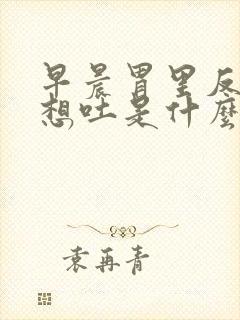 早晨胃里反
想吐是什麽
袁再青